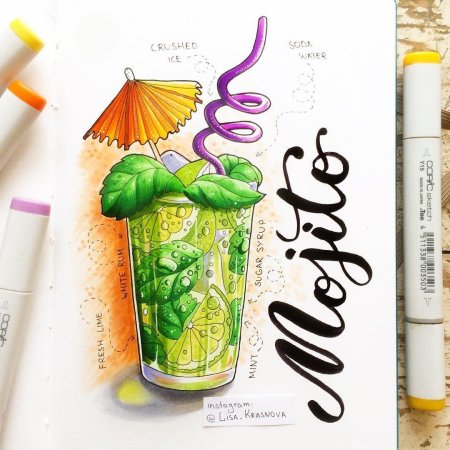 CRUSHED
ICE
SODA
WATER
Mojito
WHITE RUM
SUGAR SYRUP
FRESH LIME
MINT
instagram:
@ LISA_KRASNOVA
COPIC
sketch
Y15
COPIC